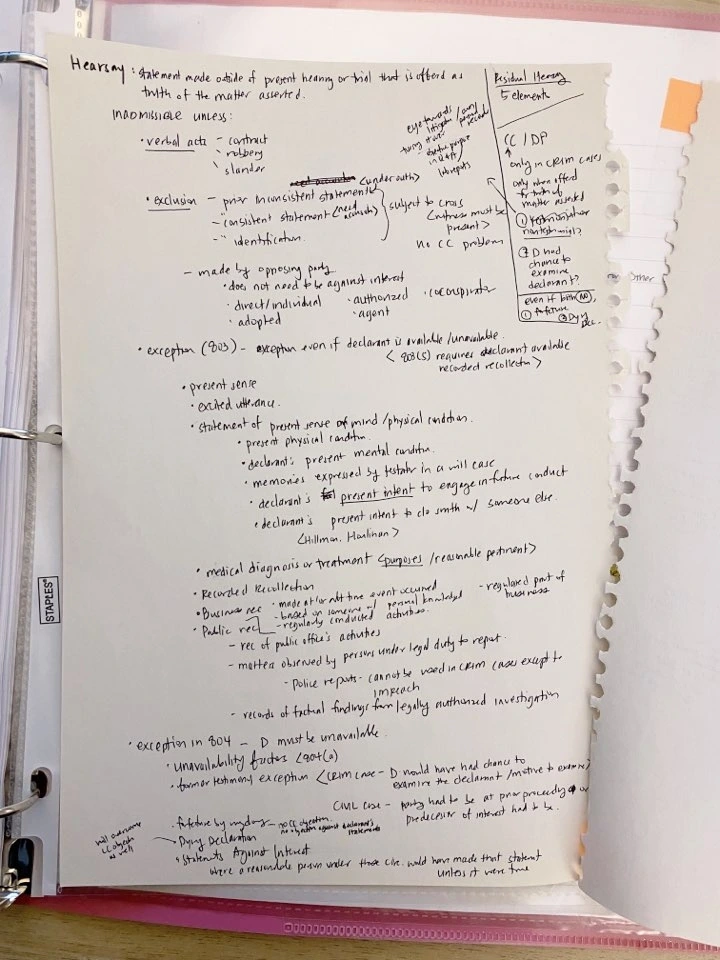 Hearsay: statement made outside of present hearing or trial that is offered as
truth of the matter asserted.
INADMISSIBLE UNLESS:
• verbal acts - contract
robbery
slander
(under oath)
• exclusion - prior inconsistent statements
- " consistent statement
- " identification.
subject to cross
<witness must be
present>
no CC problem
- made by opposing party
• does not need to be against interest
• direct/individual • authorized • coconspirator
• adopted • agent
Residual Hearsay
5 elements
CC / DP
only in CRIM cases
only when offered
for truth of
matter asserted
① testimonial or
nontestimonial?
② D had
chance to
examine
declarant?
even if both (NO),
① forfeiture
② Dying
Dec.
other
• exception (803) - exception even if declarant is available/unavailable.
< 803(5) requires declarant available
recorded recollection>
• present sense
• excited utterance.
• statement of present sense of mind/physical condition.
• present physical condition.
• declarant's present mental condition.
• memories expressed by testator in a will case
• declarant's present intent to engage in future conduct
• declarant's present intent to do smth w/ someone else.
<Hillmon, Houlihan>
• medical diagnosis or treatment <purposes/reasonable pertinent>
• Recorded Recollection
• Business rec • made at/or abt time event occurred - regulated part of
- based on someone w/ personal knowledge business
• Public rec - regularly conducted activities.
- rec of public office's activities
- matters observed by persons under legal duty to report.
- Police reports - cannot be used in CRIM cases except to
impeach
- records of factual findings from legally authorized investigation
• exception in 804 - D must be unavailable.
• Unavailability factors <804(a)
• former testimony exception <CRIM case - D would have had chance to
examine the declarant/motive to examine>
CIVIL case - party had to be at prior proceeding or
predecessor of interest had to be.
• forfeiture by wrongdoing - no CC objection.
no objection against declarant's
statements
will overcome
CC objection
as well
• Dying Declaration
• Statements Against Interest
where a reasonable person under those circ. would have made that statement
unless it were true
STAPLES®